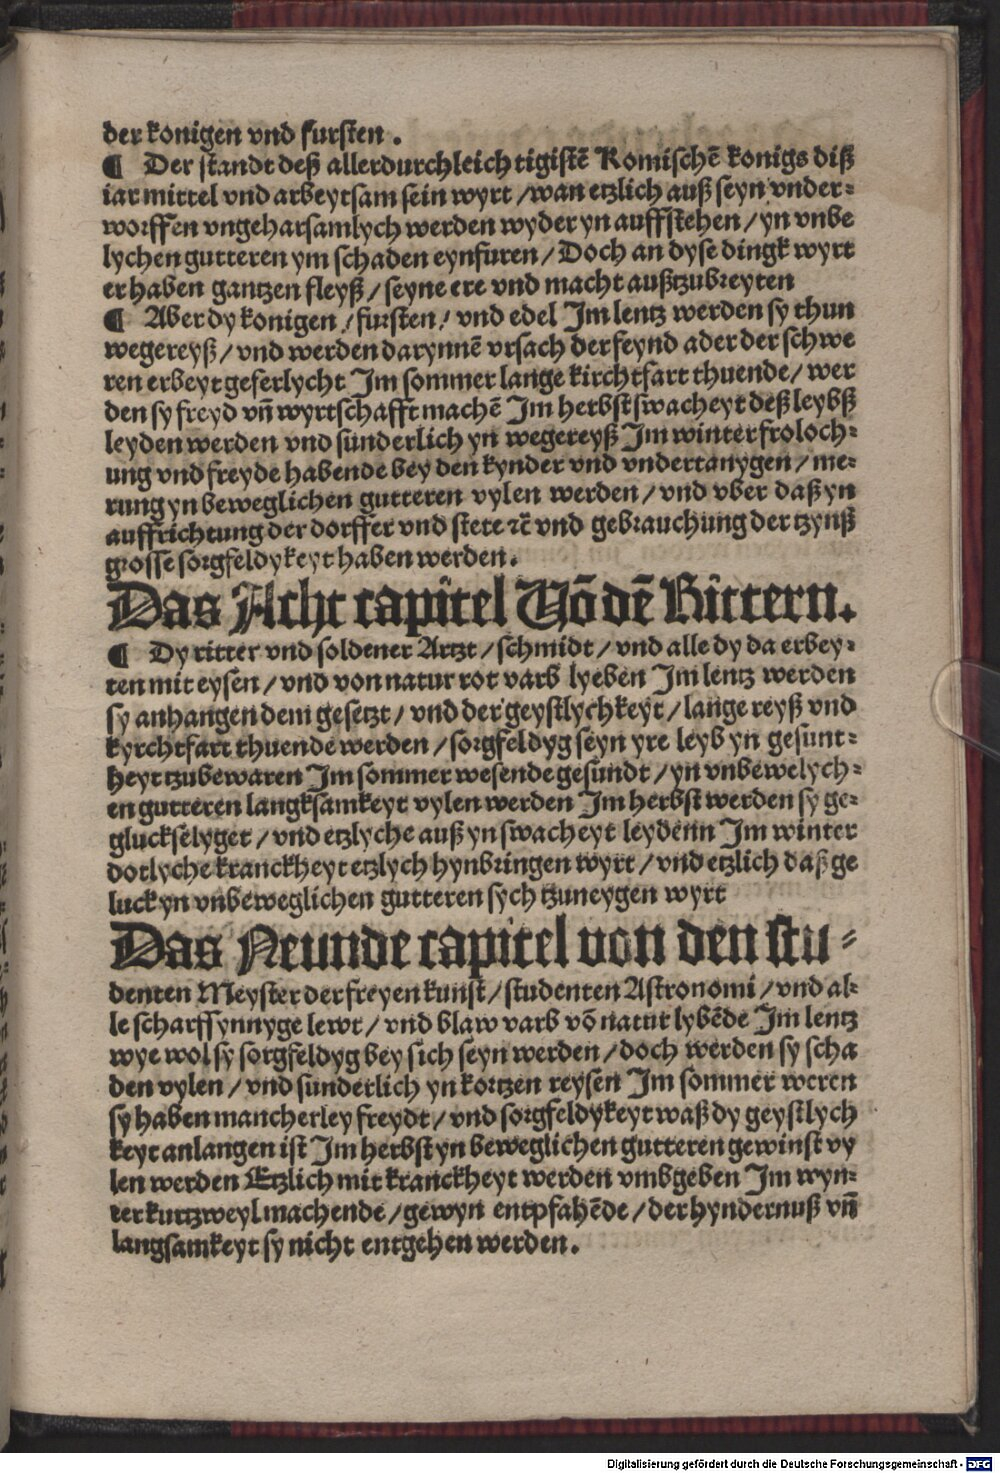 der konigen vnd fursten .
¶ Der standt deß allerdurchleich tigistē Romischē konigs diß
iar mittel vnd arbeytsam sein wyrt /wan etzlich auß seyn vnder⸗
worffen vngeharsamlych werden wyder yn auffstehen / yn vnbe
lychen gutteren ym schaden eynfuren / Doch an dyse dingk wyrt
er haben gantzen fleyß / seyne ere vnd macht außtzubreyten
¶ Aber dy konigen / fursten / vnd edel Im lentz werden sy thun
wegereyß / vnd werden darynnē vrsach der feynd ader der schwe
ren erbeyt geferlycht Im sommer lange kirchtfart thuende / wer
den sy freyd vn̄ wyrtschafft machē Im herbst swacheyt deß leybß
leyden werden vnd sunderlich yn wegereyß Im winter froloch⸗
ung vnd freyde habende bey den kynder vnd vndertanygen / me⸗
rung yn beweglichen gutteren vylen werden / vnd vber daß yn
auffrichtung der dorffer vnd stete ꝛc̄ vnd gebrauchung der tzynß
grosse sorgfeldykeyt haben werden .
Das Acht capitel Vō dē Rittern.
¶ Dy ritter vnd soldener Artzt / schmidt / vnd alle dy da erbey⸗
ten mit eysen / vnd von natur rot varb lyeben Im lentz werden
sy anhangen dem gesetzt / vnd der geystlychkeyt / lange reyß vnd
kyrchtfart thuende werden / sorgfeldyg seyn yre leyb yn gesunt⸗
heyt tzubewaren Im sommer wesende gesundt / yn vnbewelych⸗
en gutteren langksamkeyt vylen werden Im herbst werden sy ge⸗
gluckselyget / vnd etzlyche auß yn swacheyt leydenn Im winter
dotlyche kranckheyt etzlych hynbringen wyrt / vnd etzlich daß ge
luck yn vnbeweglichen gutteren sych tzuneygen wyrt
Das Neunde capitel von den stu⸗
denten Meyster der freyen kunst / studenten Astronomi / vnd al⸗
le scharffsynnyge lewt / vnd blaw varb vō natur lybēde Im lentz
wye wol sy sorgfeldyg bey sich seyn werden / doch werden sy scha
den vylen / vnd sunderlich yn kortzen reysen Im sommer weren
sy haben mancherley freydt / vnd sorgfeldykeyt waß dy geystlych
keyt anlangen ist Im herbst yn beweglichen gutteren gewinst vy
len werden Etzlich mit kranckheyt werden vmbgeben Im wyn⸗
ter kurtzweyl machende / gewyn entpfahēde / der hyndernuß vn̄
langsamkeyt sy nicht entgehen werden .
Digitalisierung gefördert durch die Deutsche Forschungsgemeinschaft - DFG